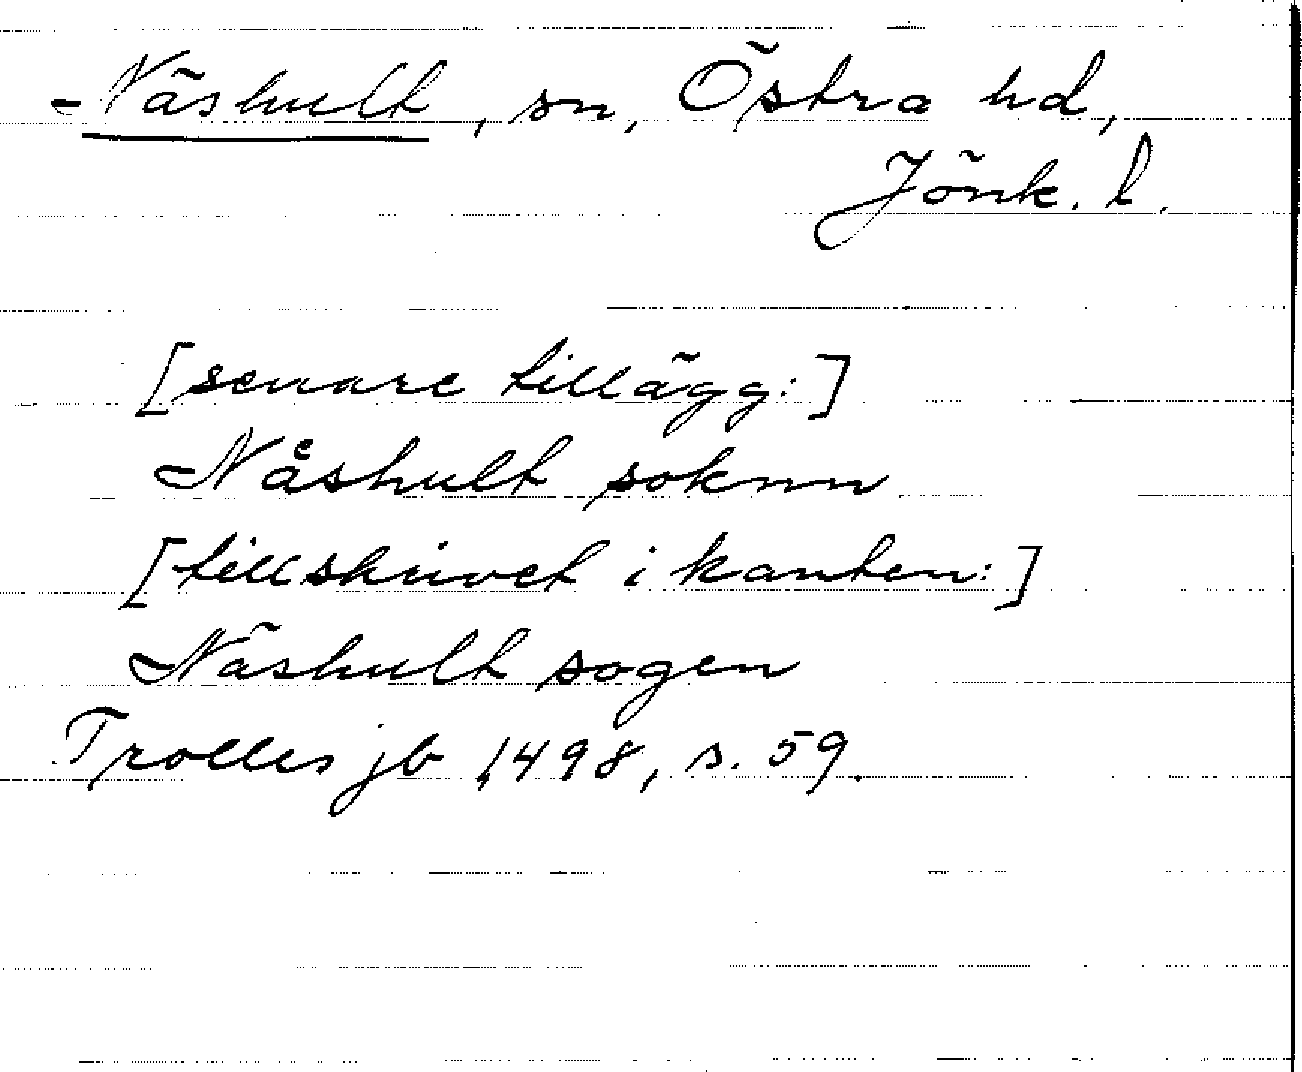 Näshult, sn, Östra hd,
Jönk. l.
[senare tillägg:]
Naͤshult soknn
[tillskrivet i kanten:]
Näshult sogen
Trolles jb 1498, s. 59.